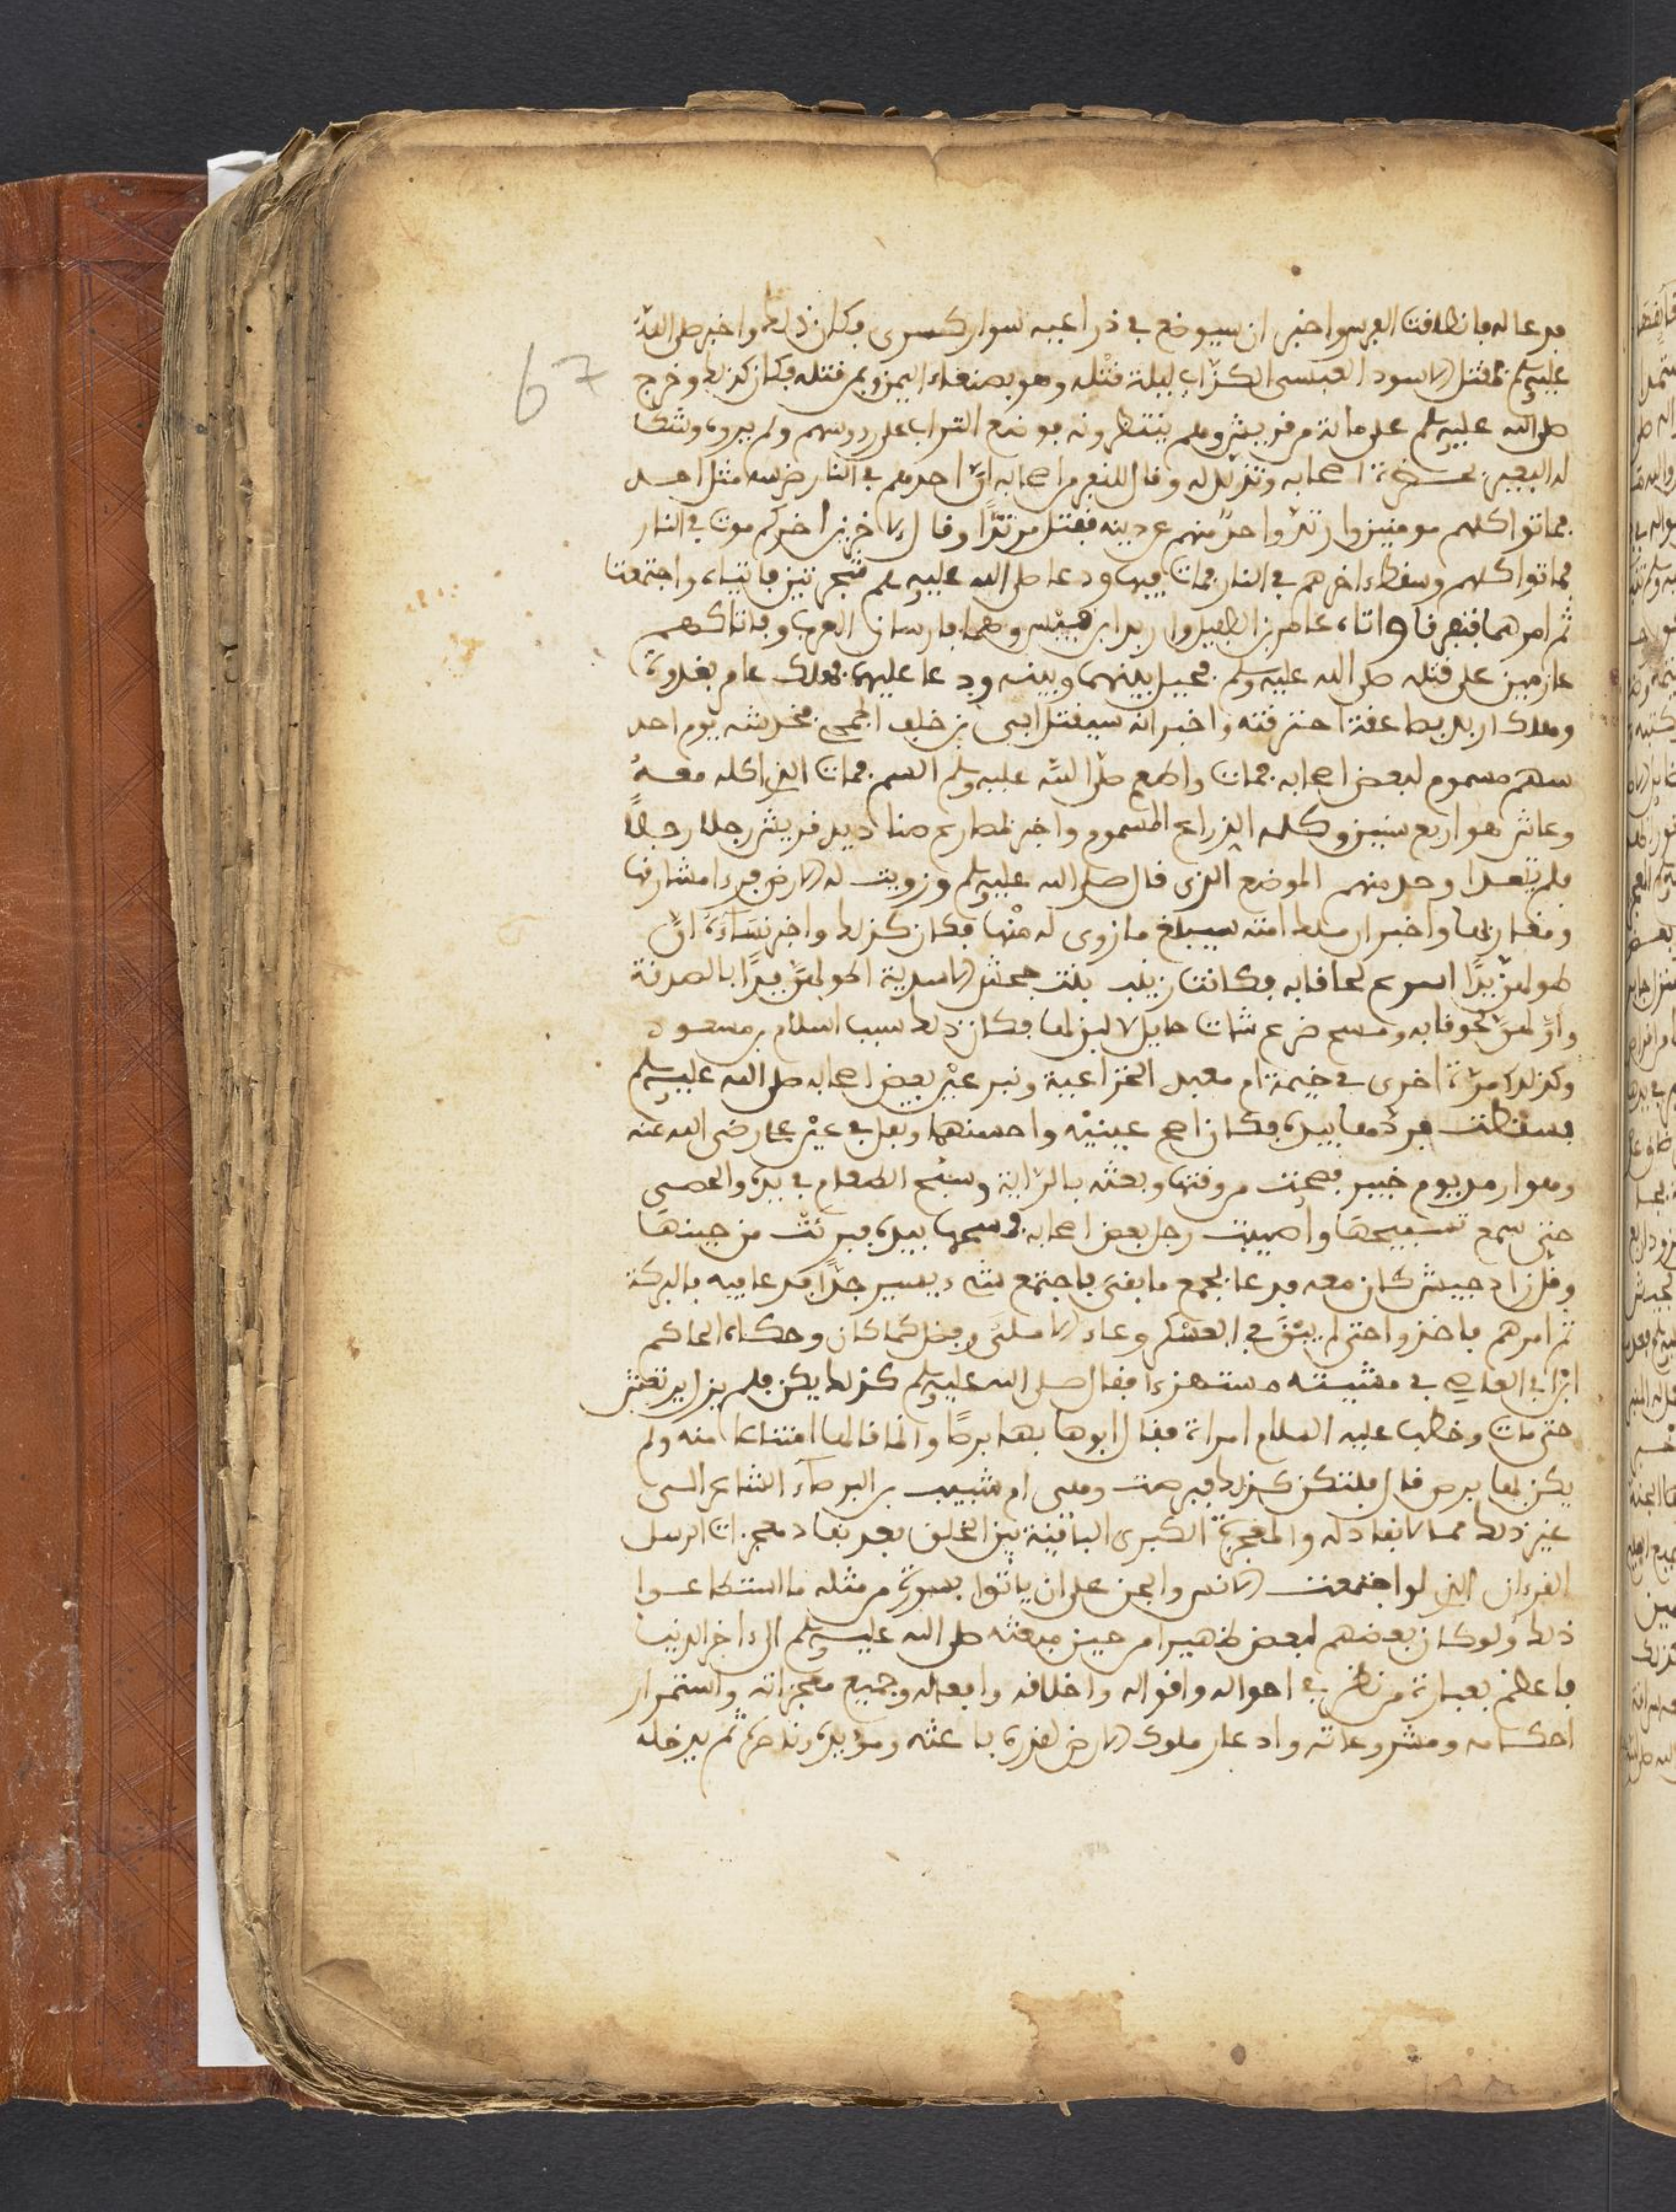 67
فدعا له فانطلقت الفرس واخبر ان سيوضع في ذراعيه سوار كسرى فكان ذلك واخبر صلى الله
عليه وسلم بمقتل الاسود العنسي الكذاب ليلة قتله وهو بصنعاء اليمن وبمن قتله فكان كذلك وخرج
صلى الله عليه وسلم على ماية من قريش وهم ينتظرونه فوضع التراب على رءوسهم ولم يروه وشكا
له البعير بحضرة اصحابه وتذلل له وقال لنفر من اصحابه ان احدكم في النار ضرسه مثل احد
فماتوا كلهم مومنين وارتد واحد منهم عن دينه فقتل مرتدا وقال لاخرين اخركم موتا في النار
فماتوا كلهم وسقط اخرهم في النار فمات فيها ودعا صلى الله عليه وسلم شجرتين فاتتاه واجتمعتا
ثم امرهما فتفرقا واتاه عامر بن الطفيل واربد ابن قيس وهما فارسان العرب وفاتاكهم
عازمين على قتله صلى الله عليه وسلم فحيل بينهما وبينه ودعا عليهما فهلك عامر بغدة
وهلك اربد بصاعقة احترقته واخبر انه سيقتل ابي بن خلف الجمحي فخدشه يوم احد
سهم مسموم لبعض اصحابه فمات واطعم صلى الله عليه وسلم السم فمات الذي اكله معه
وعاش هو اربع سنين وكلمه الذراع المسموم واخبر بمصارع صناديد قريش رجلا رجلا
فلم يتعد احد منهم الموضع الذي قال صلى الله عليه وسلم وزويت له الارض فرءا مشارقها
ومغاربها واخبر ان ملك امته سيبلغ ما زوى له منها فكان كذلك واخبر نساءه ان
اطولهن يدا اسرع لحاقا به فكانت زينب بنت جحش الاسدية اطولهن يدا بالصدقة
واولهن لحوقا به ومسح ضرع شات حايل لا لبن لها فكان ذلك سبب اسلام بن مسعود
وكذلك مرة اخرى في خيمة ام معبد الخزاعية وندر عين بعض اصحابه صلى الله عليه وسلم
فسقطت فردها بيده فكان اصح عينيه واحسنهما وتفل في عين علي رضي الله عنه
وهو ارمد يوم خيبر فصحت من وقتها وبعثه بالراية وسبح الطعام في يده والحصى
حتى سمع تسبيحها واصيبت رجل بعض اصحابه فمسحها بيده فبرئت من حينها
وقل زاد جيش كان معه فدعا بجمع ما بقي فاجتمع شيء يسير جدا فدعا فيه بالبركة
ثم امرهم فاخذوا حتى لم يبق في العسكر وعاء الا ملئ وفضل كما كان وحكاه الحاكم
ابن ابي العاصي في مشيته مستهزءا فقال صلى الله عليه وسلم كذلك يكن فلم يزل يرتعش
حتى مات وخطب عليه السلام امراة فقال ابوها بها برصا وانما قالها امتناعا منه ولم
يكن بها برص قال فلتكن كذلك فبرصت وهي ام شبيب بن البرصاء الشاعر الى
غير ذلك مما لا نفاد له والمعجزة الكبرى الباقية بين الخلق بعد نفاد معجزات الرسل
القرءان الذي لو اجتمعت الانس والجن على ان ياتوا بسورة من مثله ما استطاعوا
ذلك ولو كان بعضهم لبعض ظهيرا من حين مبعثه صلى الله عليه وسلم الى ءاخر الدنيا
فاعظم بعبارة من نظر في احواله واقواله واخلاقه وافعاله وجميع معجزاته واستمرار
احكامه ومشروعاته واذعان ملوك الارض لقدرة باعثه ومؤيده وناصره ثم يدخله